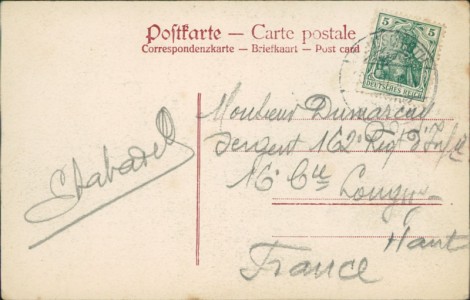 Postkarte — Carte postale
Correspondenzkarte – Briefkaart – Post card
5 5
DEUTSCHES REICH
Monsieur Dumarcay
Sergent 162e Regt d'Infie
16e Cie
France